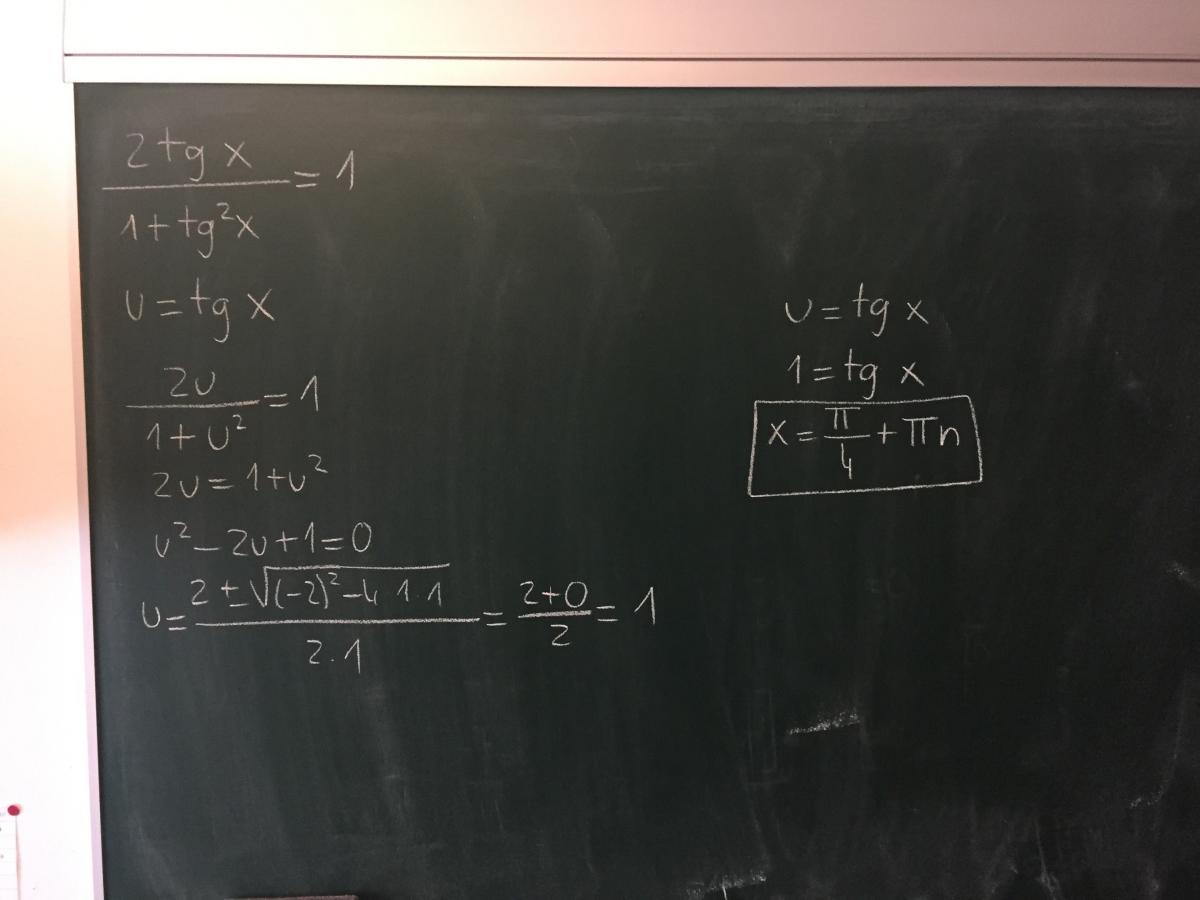 2 tg x / 1 + tg²x = 1
u = tg x
2u / 1 + u² = 1
2u = 1 + u²
u² - 2u + 1 = 0
u = 2 ± √(-2)² - 4 1 · 1 / 2 · 1 = 2 + 0 / 2 = 1
u = tg x
1 = tg x
x = π / 4 + πn